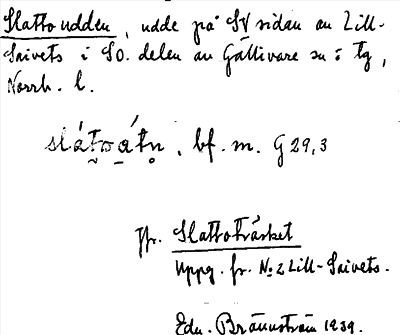 Slattoudden, udde på SV sidan av Lill-
Saivets i SO. delen av Gällivare sn i Lg,
Norrb. l.
bf. m. G 29,3
Jfr. Slattoträsket
Uppg. fr. No 2 Lill-Saivets.
Edv. Brännström 1939.